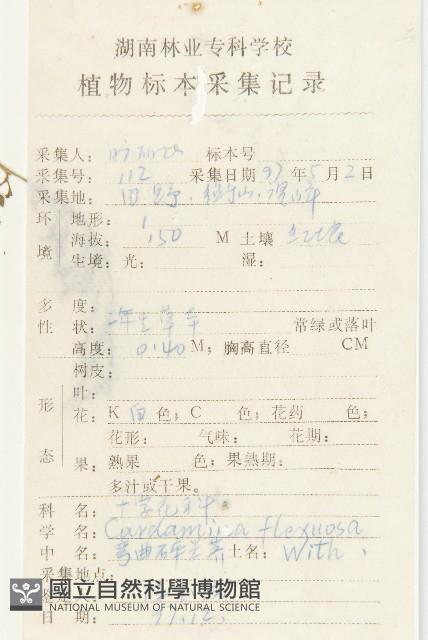 湖南林业专科学校
植物标本采集记录
采集人： 标本号
采集号： 112 采集日期 97 年 5 月 2 日
采集地： 田野
环境 地形：
海拔： 150 M 土壤 红壤
生境：光： 湿：
多度：
性状： 二年生草本 常绿或落叶
高度： 0.40 M；胸高直径 CM
树皮：
形态 叶：
花： K 白 色；C 色；花药 色；
花形： 气味： 花期：
果： 熟果 色；果熟期：
多汁或干果。
科名： 十字花科
学名： Cardamina flexuosa
中名： 弯曲碎米荠 土名： With.
采集地点：
國立自然科學博物館
NATIONAL MUSEUM OF NATURAL SCIENCE
日期： 97.12.